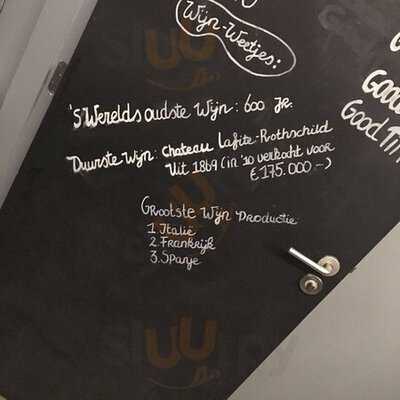 Wijn-Weetjes:
'S Werelds oudste Wijn: 600 Jr.
Duurste Wijn: Chateau Lafite-Rothschild
Uit 1869 (in '10 verkocht voor
€ 175.000 -)
Grootste Wijn Productie:
1. Italië
2. Frankrijk
3. Spanje
Good
Good